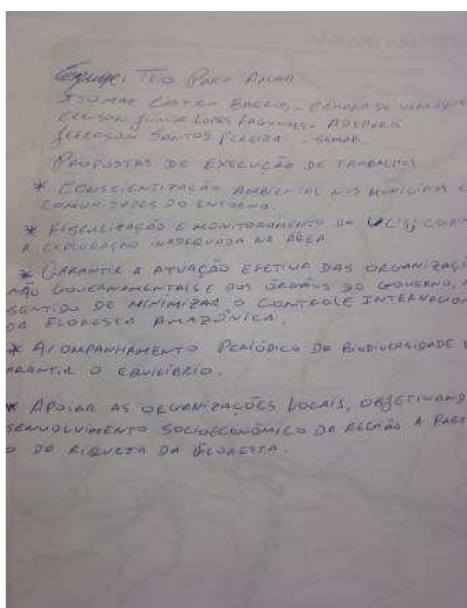 Equipe: Trio Para Amar
Isomar Castro Barros - Câmara de
Júnior Lopes - ADEPARÁ
Jeferson Santos Pereira - SEMAR.
Propostas de execução de trabalhos
* Conscientização ambiental nos municípios e
comunidades do entorno.
* Fiscalização e monitoramento da UC's;
a exploração inadequada na área
* Garantir a atuação efetiva das organizaçõ
não governamentais e dos órgãos do governo, n
sentido de minimizar o controle internacion
da Floresta Amazônica.
* Acompanhamento periódico da biodiversidade
arantir o equilíbrio.
* Apoiar as organizações locais, objetivand
senvolvimento socioeconômico da região a part
o da riqueza da floresta.